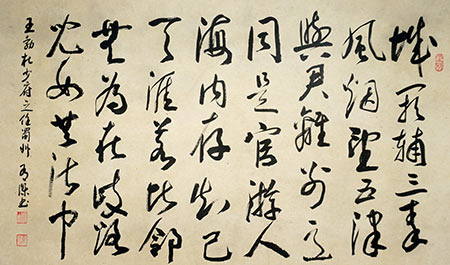 城阙輔三秦
風烟望五津
與君離别意
同是宦游人
海内存知己
天涯若比鄰
無為在歧路
兒女共沾巾
王勃杜少府之任蜀州 书